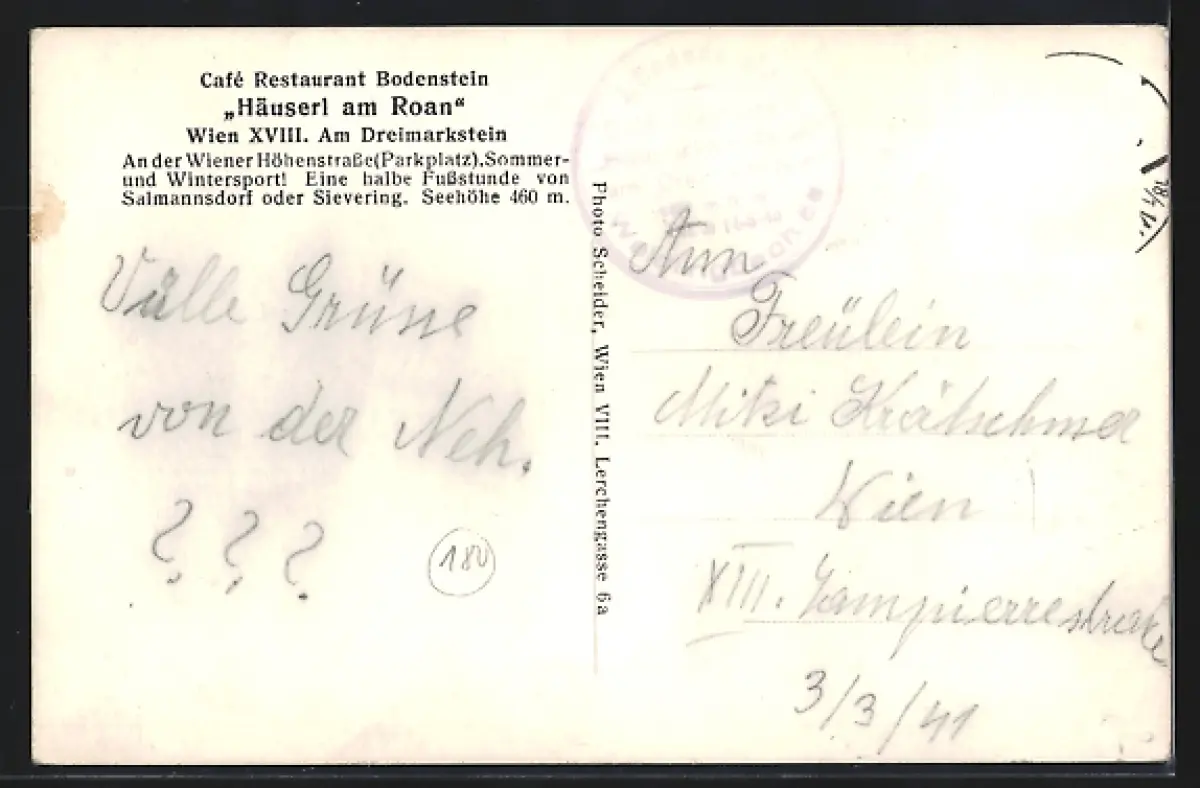 Café Restaurant Bodenstein
„Häuserl am Roan“
Wien XVIII. Am Dreimarkstein
An der Wiener Höhenstraße(Parkplatz).Sommer-
und Wintersport! Eine halbe Fußstunde von
Salmannsdorf oder Sievering. Seehöhe 460 m.
Välle Grüne
von der Neh.
? ? ?
180
Photo Scheider, Wien VIII. Lerchengasse 6a
Ann
Freülein
Mitzi Krätschmer
Wien
XIII.
3/3/41